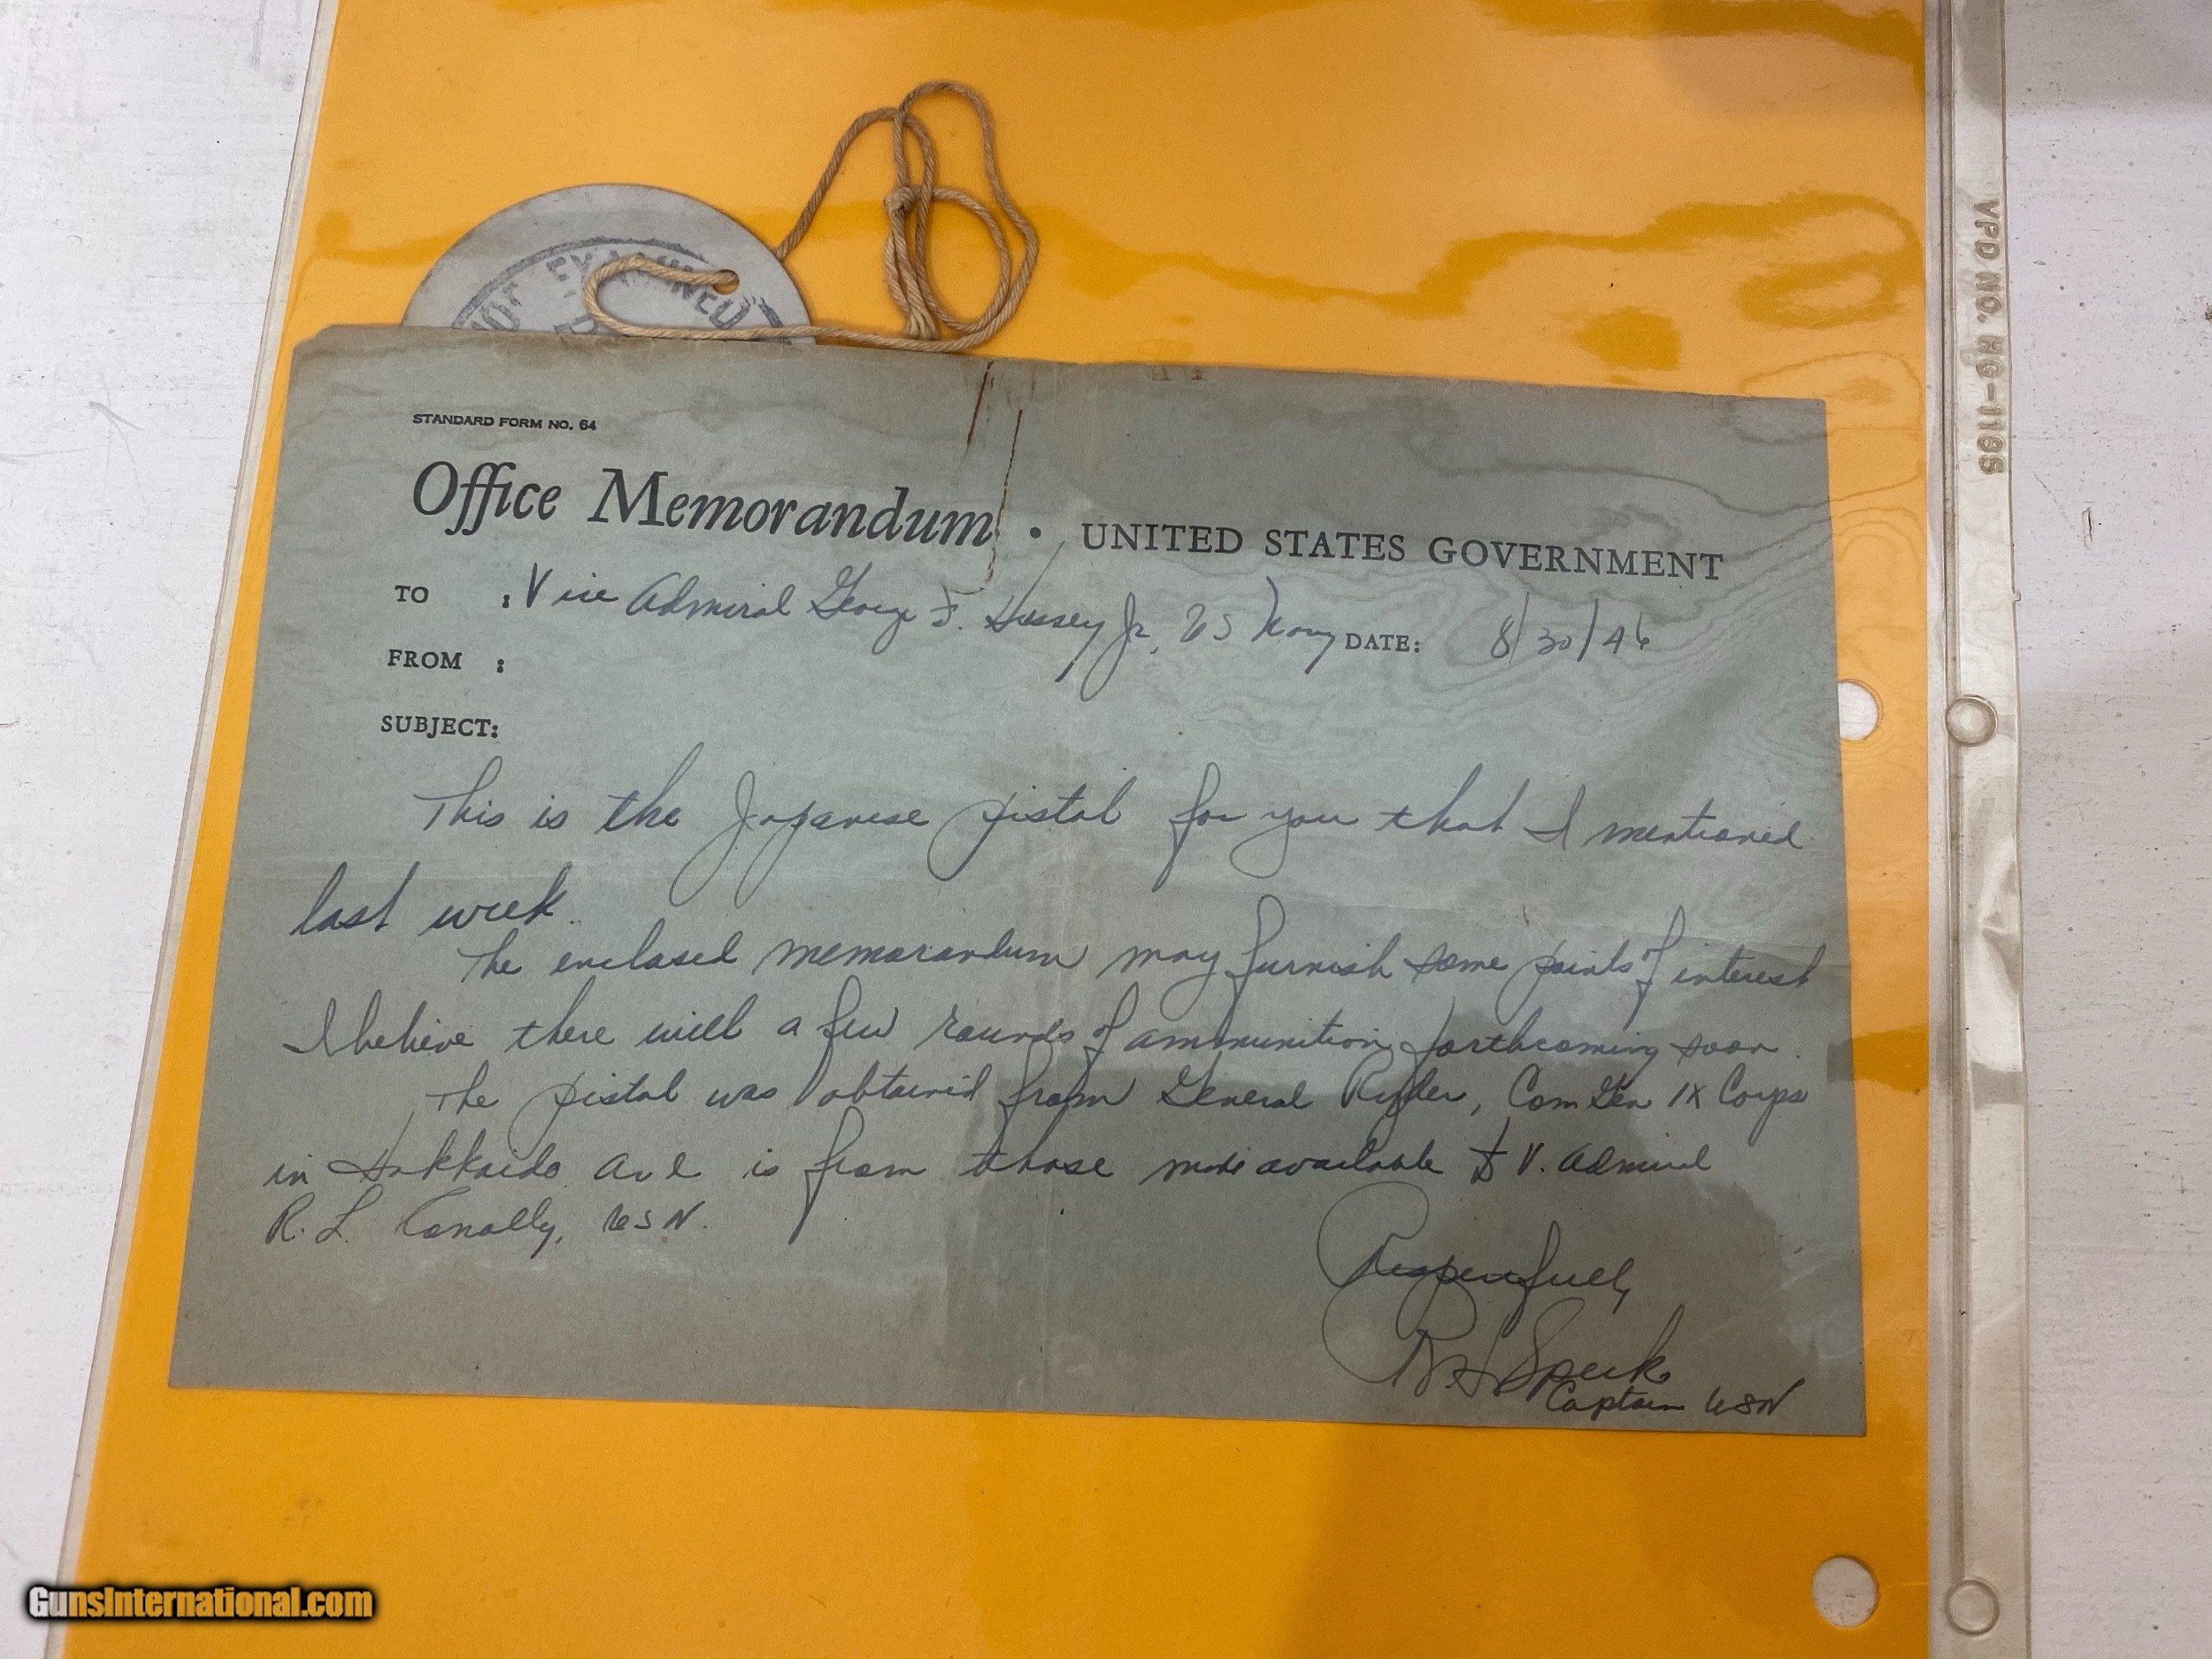 NOT EXAMINED
VPD NO. HG-118S
STANDARD FORM NO. 64
Office Memorandum • UNITED STATES GOVERNMENT
TO : Vice Admiral George F. Hussey Jr, US Navy DATE: 8/30/46
FROM :
SUBJECT:
This is the Japanese pistol for you that I mentioned
last week.
The enclosed memorandum may furnish some points of interest
I believe there will a few rounds of ammunition forthcoming soon.
The pistol was obtained from General Ryder, ComGen IX Corps
in Hokkaido and is from those made available to V. Admiral
R. L. Conolly, USN.
Respectfully
Speck
Captain USN
GunsInternational.com